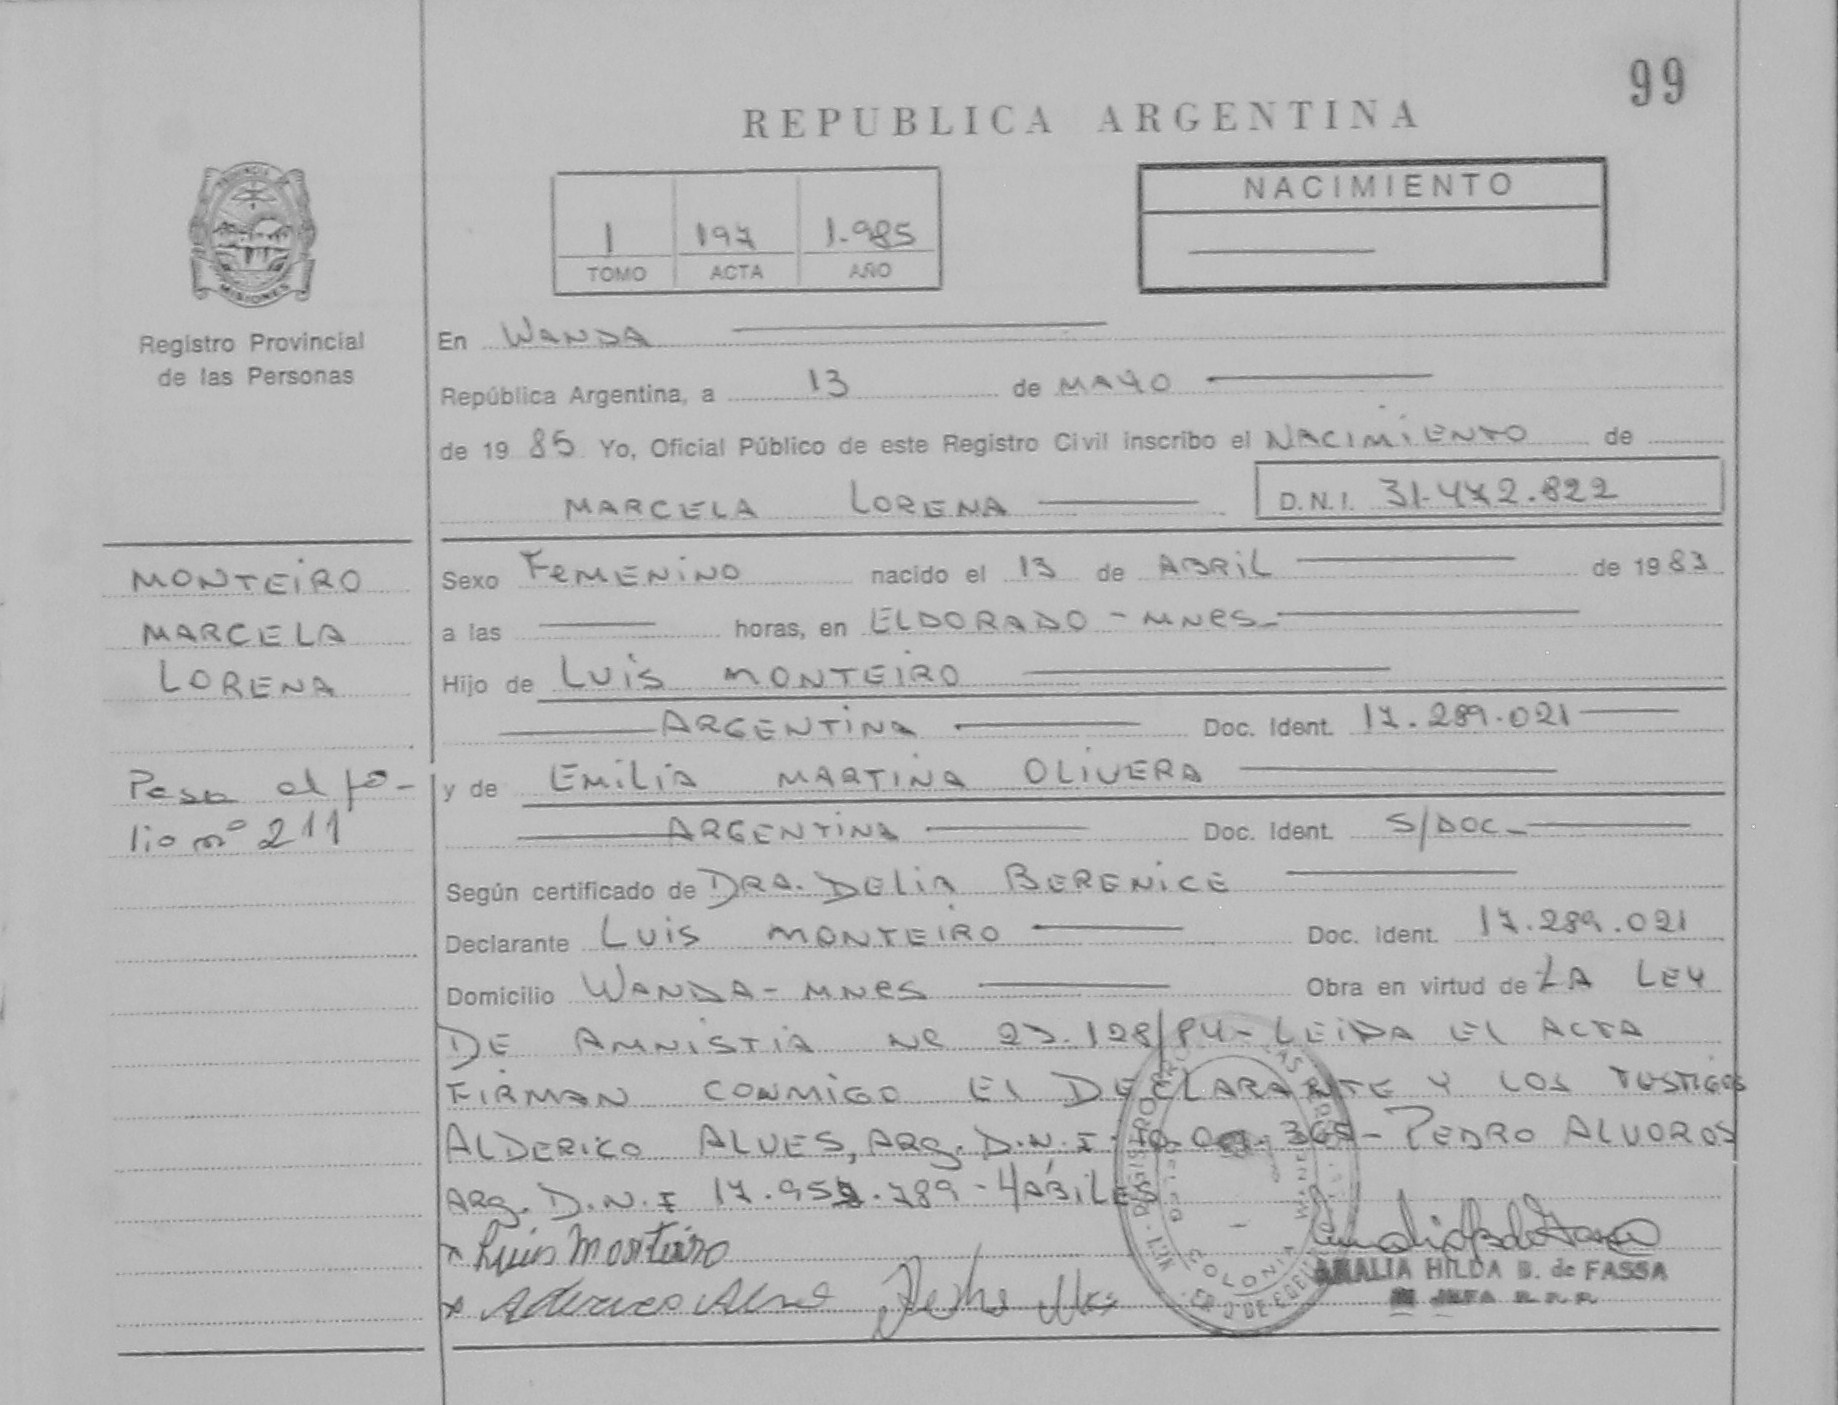 99
REPUBLICA ARGENTINA
PROVINCIA DE
MISIONES
Registro Provincial
de las Personas
1 197 1.985
TOMO ACTA AÑO
NACIMIENTO
En WANDA
República Argentina, a 13 de MAYO
de 19 85 Yo, Oficial Público de este Registro Civil inscribo el NACIMIENTO de
MARCELA LORENA D.N.I. 31.472.822
MONTEIRO
MARCELA
LORENA
Pasa al fo-
lio nº 211
Sexo FEMENINO nacido el 13 de ABRIL de 19 83
a las horas, en ELDORADO - MNES-
Hijo de LUIS MONTEIRO
ARGENTINA Doc. Ident. 17.289.021
y de EMILIA MARTINA OLIVERA
ARGENTINA Doc. Ident. S/DOC-
Según certificado de DRA. DELIA BERENICE
Declarante LUIS MONTEIRO Doc. Ident. 17.289.021
Domicilio WANDA - MNES Obra en virtud de LA LEY
DE AMNISTIA Nº 23.128/84 - LEIDA EL ACTA
FIRMAN CONMIGO EL DECLARANTE Y LOS TESTIGOS
ALDERICO ALVES, ARG. D.N.I - PEDRO ALVOROS
ARG. D.N.I 17.952.789 - HÁBILES
x Luis Monteiro
x
AMALIA HILDA B. de FASSA
JEFA R.P.P.